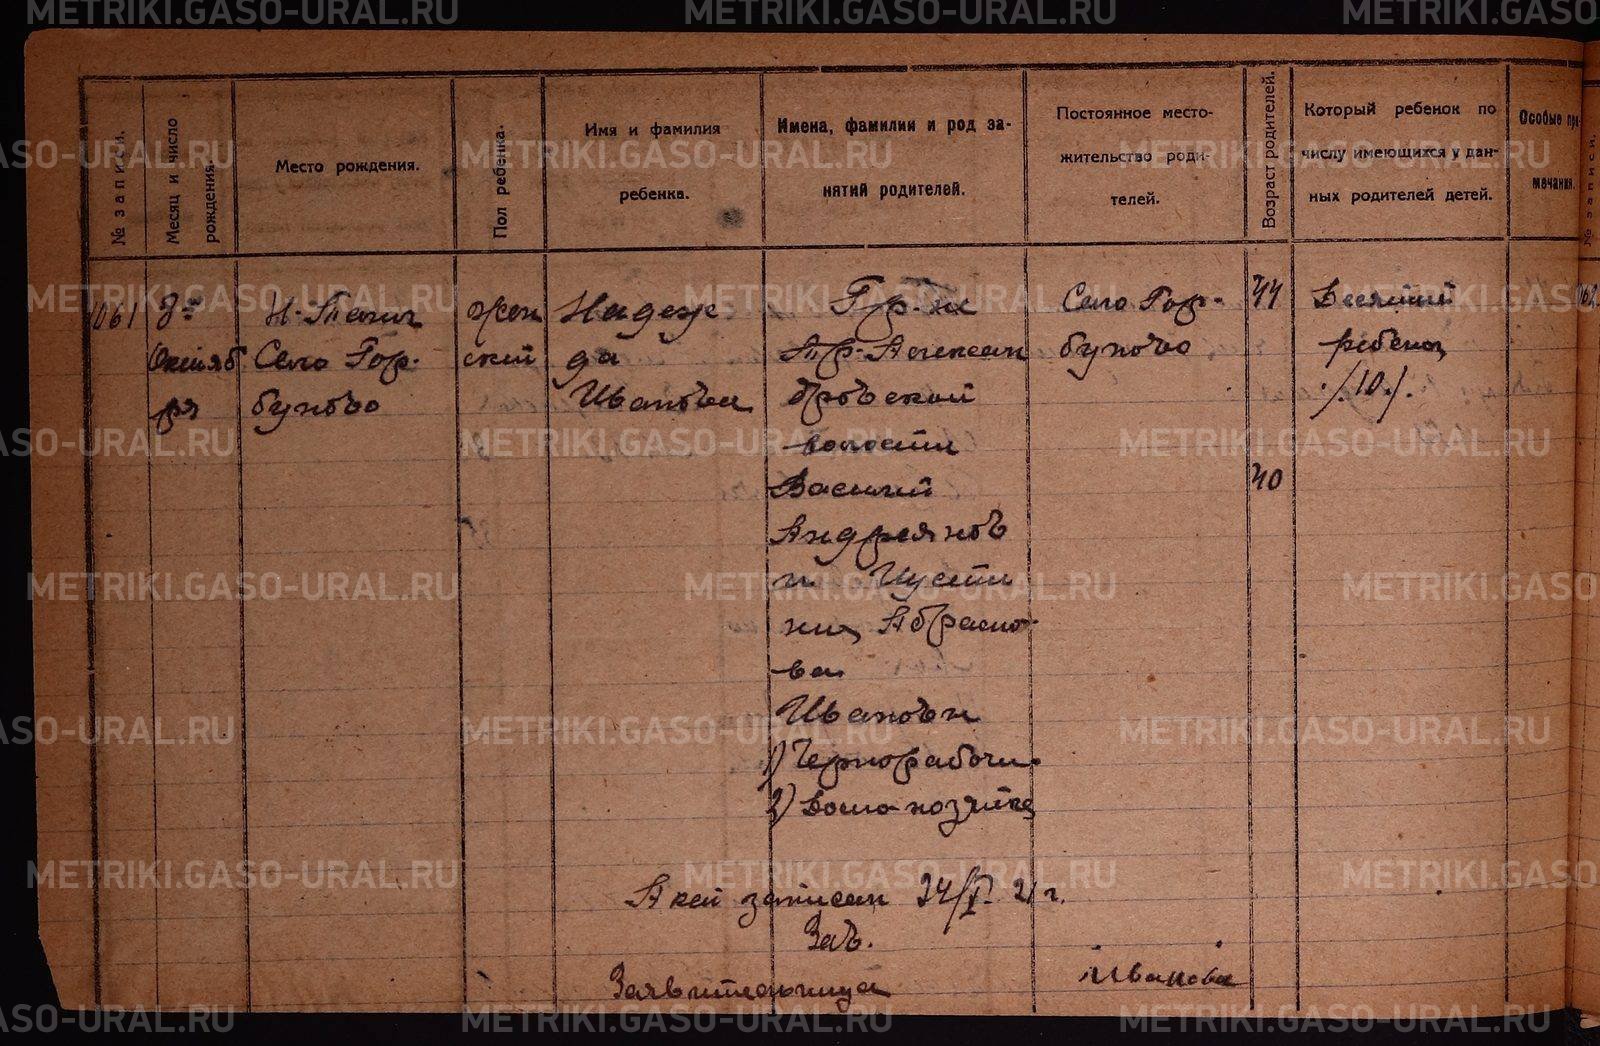 № записи.
Месяц и число рождения.
Место рождения.
Пол ребенка.
Имя и фамилия
ребенка.
Имена, фамилии и род за-
нятий родителей.
Постоянное место-
жительство роди-
телей.
Возраст родителей.
Который ребенок по
числу имеющихся у дан-
ных родителей детей.
Особые при-
мечания.
№ записи.
1061
Октяб
ря
Н-Тагил
Село Гор-
буново
жен
ский
Надеж
да
Иванова
Гр-не
Алексан
дровской
волости
Василий
Андреянов
и Иусти
ния Абрамо-
ва
Ивановы
1) Чернорабочи
2) Домо-хозяйка
Село Гор-
буново
44
40
ребенок
/10/.
Акт записан 24/X 21 г.
Зав.
Заявительница
Иванова
METRIKI.GASO-URAL.RU